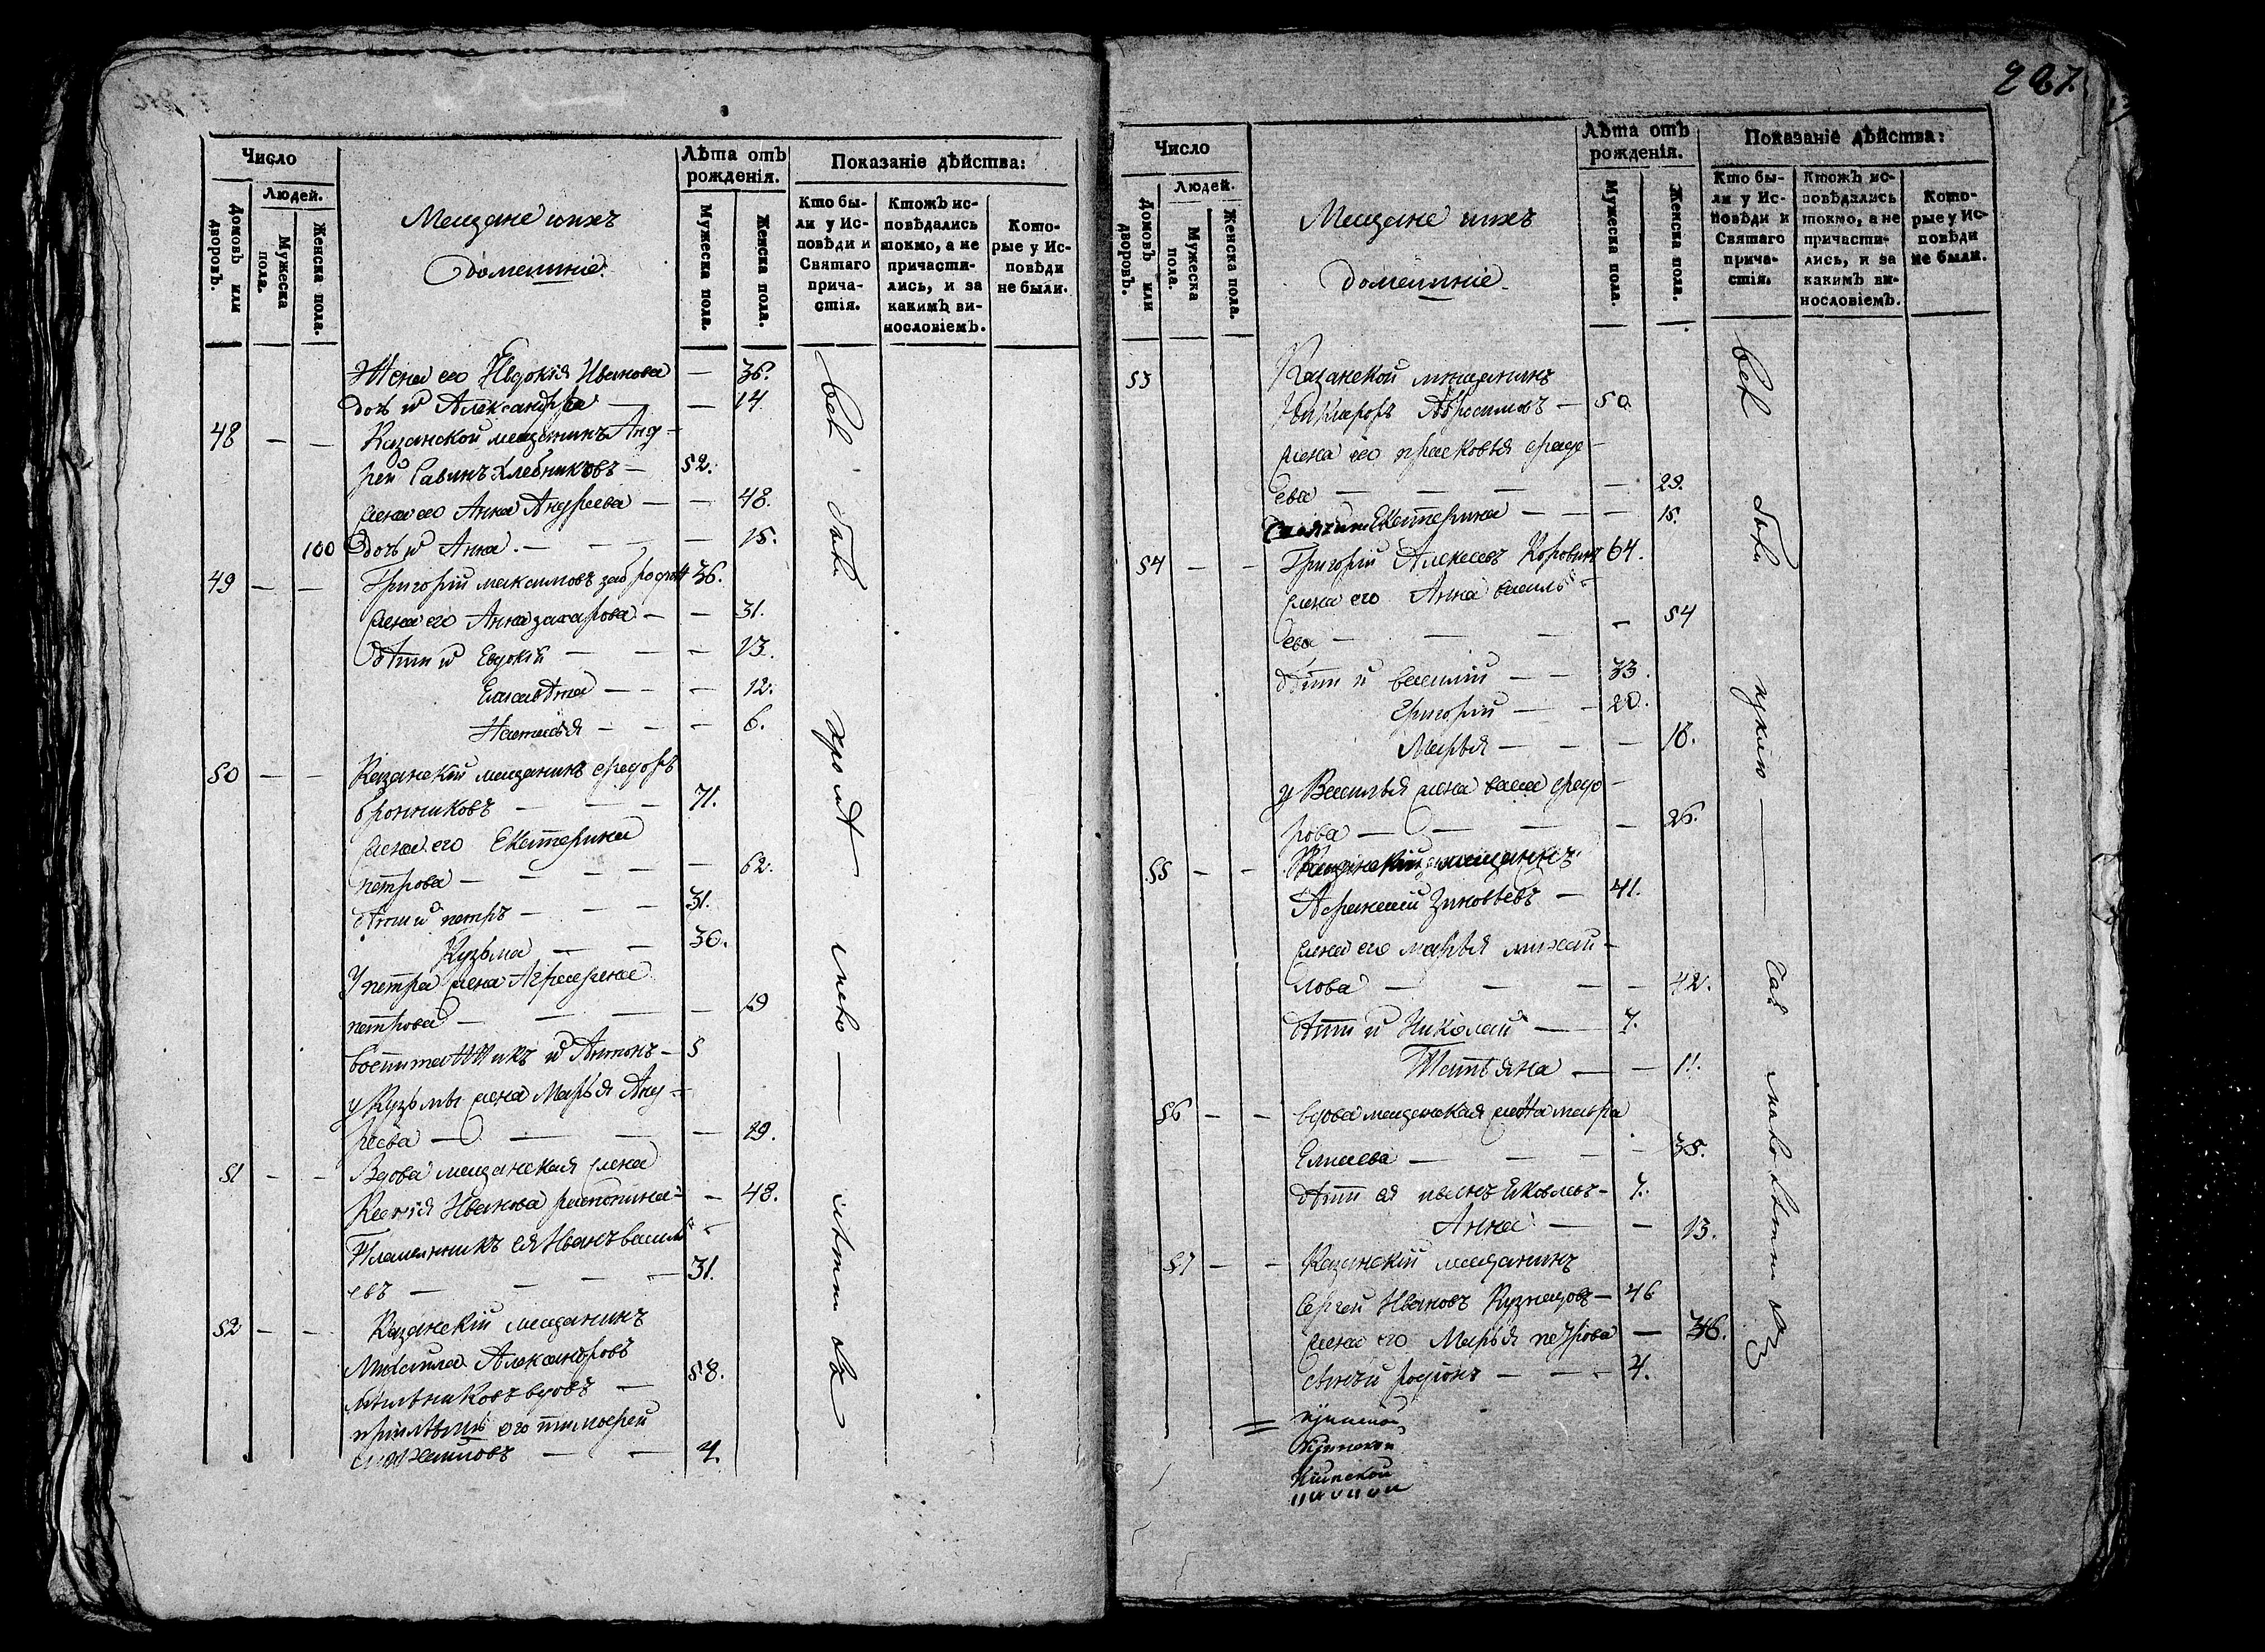 Число
Людей.
Домовъ или дворовъ.
Мужеска пола.
Женска пола.
Мещане ихъ
домашніе.
Лѣта отъ рожденія.
Мужеска пола.
Женска пола.
Показаніе дѣйства:
Кто бы-
ли у Ис-
повѣди и
Святаго
прича-
стія.
Ктожъ ис-
повѣдались
токмо, а не
причасти-
лись, и за
какимъ ви-
нословіемъ.
Кото-
рые у Ис-
повѣди
не были.
Жена его Евдокія Иванова — 36.
дочь и Александра — — 14
48 — — Казанской мещанинъ Анд-
рей Савинъ Хлебниковъ — 52.
жена его Анна Андреева — — 48.
100 дочь и Анна. — — — 15.
49 — — Григорій Максимовъ 36.
жена его Анна Захарова — — 31.
дѣти и Евдокія — — — 13.
Елисавета — — — 12.
Настасья — — — 6.
50 — — Казанскій мещанинъ Федоръ
бронниковъ — — — 71.
жена его Екатерина
петрова — — — — 62.
дѣти и петръ — — — 31.
Кузьма — — 30.
У петра жена Аграфена
петрова — — — — 19
воспитанникъ и Антонъ — 5
у Кузьмы жена Марья Анд-
реева — — — — 29.
51 — — Вдова мещанская жена
Ксенія Иванова — 48.
Племянникъ ея Иванъ Василь-
евъ — — — 31.
52 — — Казанскій мещанинъ
Михайла Александровъ
Мѣльниковъ вдовъ — 58.
его тимофей
— — 4.
все были
кромѣ
—
лѣтнихъ
227.
Число
Людей.
Домовъ или дворовъ.
Мужеска пола.
Женска пола.
Мещане ихъ
домашніе.
Лѣта отъ
рожденія.
Мужеска пола.
Женска пола.
Показаніе дѣйства:
Кто бы-
ли у Ис-
повѣди и
Святаго
прича-
стія.
Ктожъ ис-
повѣдались
токмо, а не
причасти-
лись, и за
какимъ ви-
нословіемъ.
Кото-
рые у Ис-
повѣди
не были.
53 Казанской мещанинъ
Никифоръ Абросимовъ — 50.
жена его прасковья Фаде-
ева — — — — 29.
Екатерина — — — 15.
54 — — Григорій Алексеевъ Коровинъ 64.
жена его Анна Василь-
ева — — — — 54
дѣти и Василій — — 33.
Григорій — — 20.
Марья — — — 18.
у Василья жена васса Федо-
рова — — — — 26.
55 — — Казанскій мещанинъ
Афанасий Зиновьевъ — 41.
жена его марья михай-
лова — — — — 42.
дѣти и Николай — 7.
Татьяна — — 11.
56 — — вдова мещанская жена мавра
Елисеева — — — — 35.
дѣти ея Иванъ Яковлевъ — 7.
Анна — — 13.
57 — — Казанскій мещанинъ
Сергей Ивановъ Кузнецовъ — 46
жена его Марья петрова — 36.
сынъ и родіонъ — — — 4.
все были
— —
лѣтнихъ